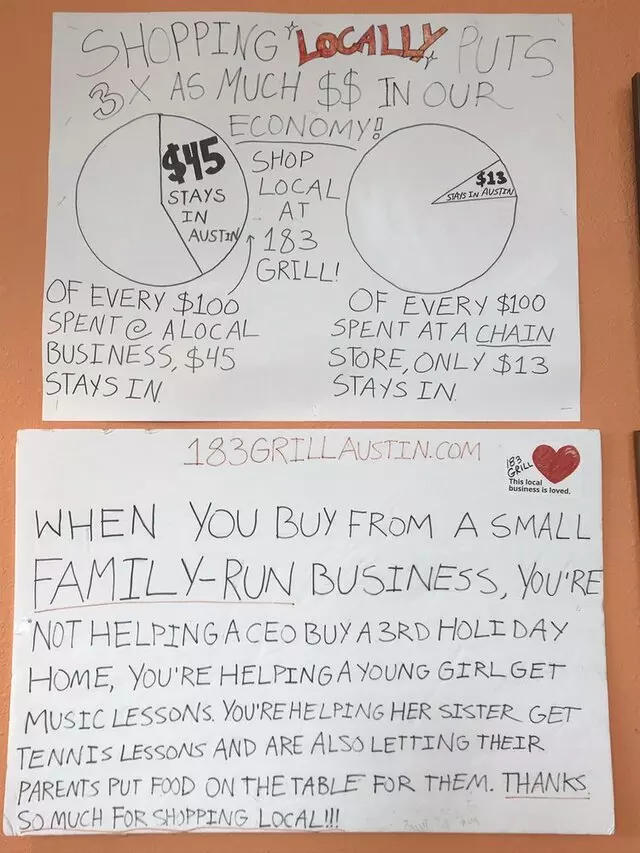 SHOPPING LOCALLY PUTS
3X AS MUCH $$ IN OUR
ECONOMY!
$45
STAYS
IN
AUSTIN
SHOP
LOCAL
AT
183
GRILL!
$13
STAYS IN AUSTIN
OF EVERY $100
SPENT @ A LOCAL
BUSINESS, $45
STAYS IN
OF EVERY $100
SPENT AT A CHAIN
STORE, ONLY $13
STAYS IN
183GRILLAUSTIN.COM
183
GRILL
This local
business is loved.
WHEN YOU BUY FROM A SMALL
FAMILY-RUN BUSINESS, YOU'RE
NOT HELPING A CEO BUY A 3RD HOLIDAY
HOME, YOU'RE HELPING A YOUNG GIRL GET
MUSIC LESSONS. YOU'RE HELPING HER SISTER GET
TENNIS LESSONS AND ARE ALSO LETTING THEIR
PARENTS PUT FOOD ON THE TABLE FOR THEM. THANKS
SO MUCH FOR SHOPPING LOCAL!!!